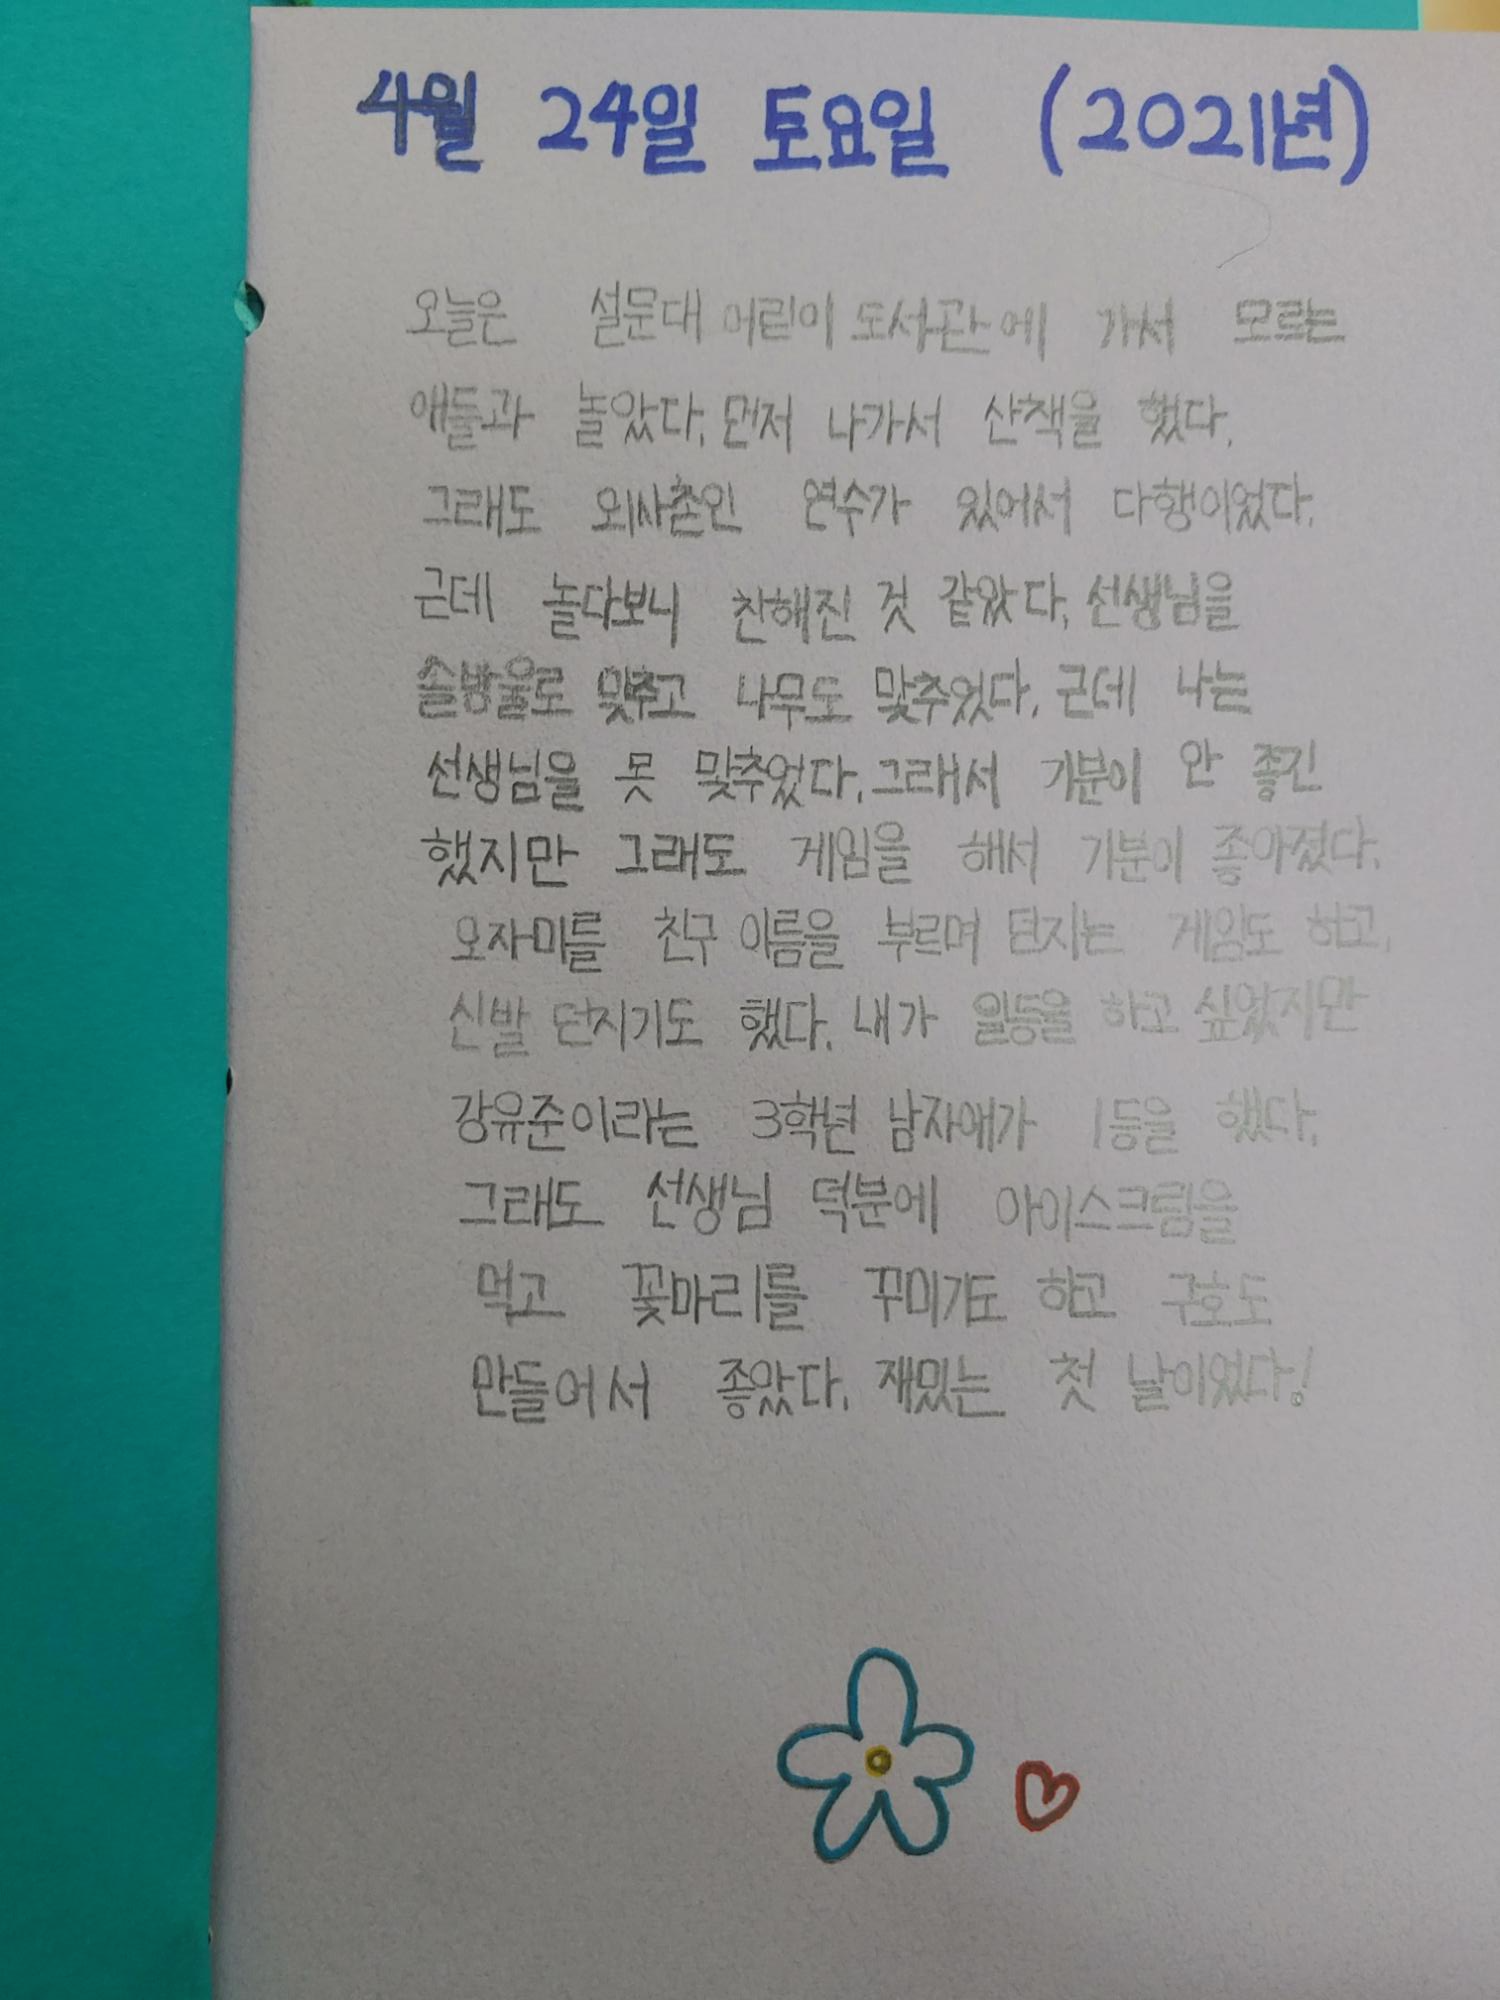 4월 24일 토요일 (2021년)
오늘은 설문대 어린이 도서관에 가서 모르는
애들과 놀았다. 먼저 나가서 산책을 했다.
그래도 외사촌인 연수가 있어서 다행이었다.
근데 놀다보니 친해진 것 같았다. 선생님을
솔방울로 맞추고 나무도 맞추었다. 근데 나는
선생님을 못 맞추었다. 그래서 기분이 안 좋긴
했지만 그래도 게임을 해서 기분이 좋아졌다.
오자미를 친구 이름을 부르며 던지는 게임도 하고,
신발 던지기도 했다. 내가 일등을 하고 싶었지만
강유준이라는 3학년 남자애가 1등을 했다.
그래도 선생님 덕분에 아이스크림을
먹고 꽃마리를 꾸미기도 하고 구호도
만들어서 좋았다. 재밌는 첫 날이었다!